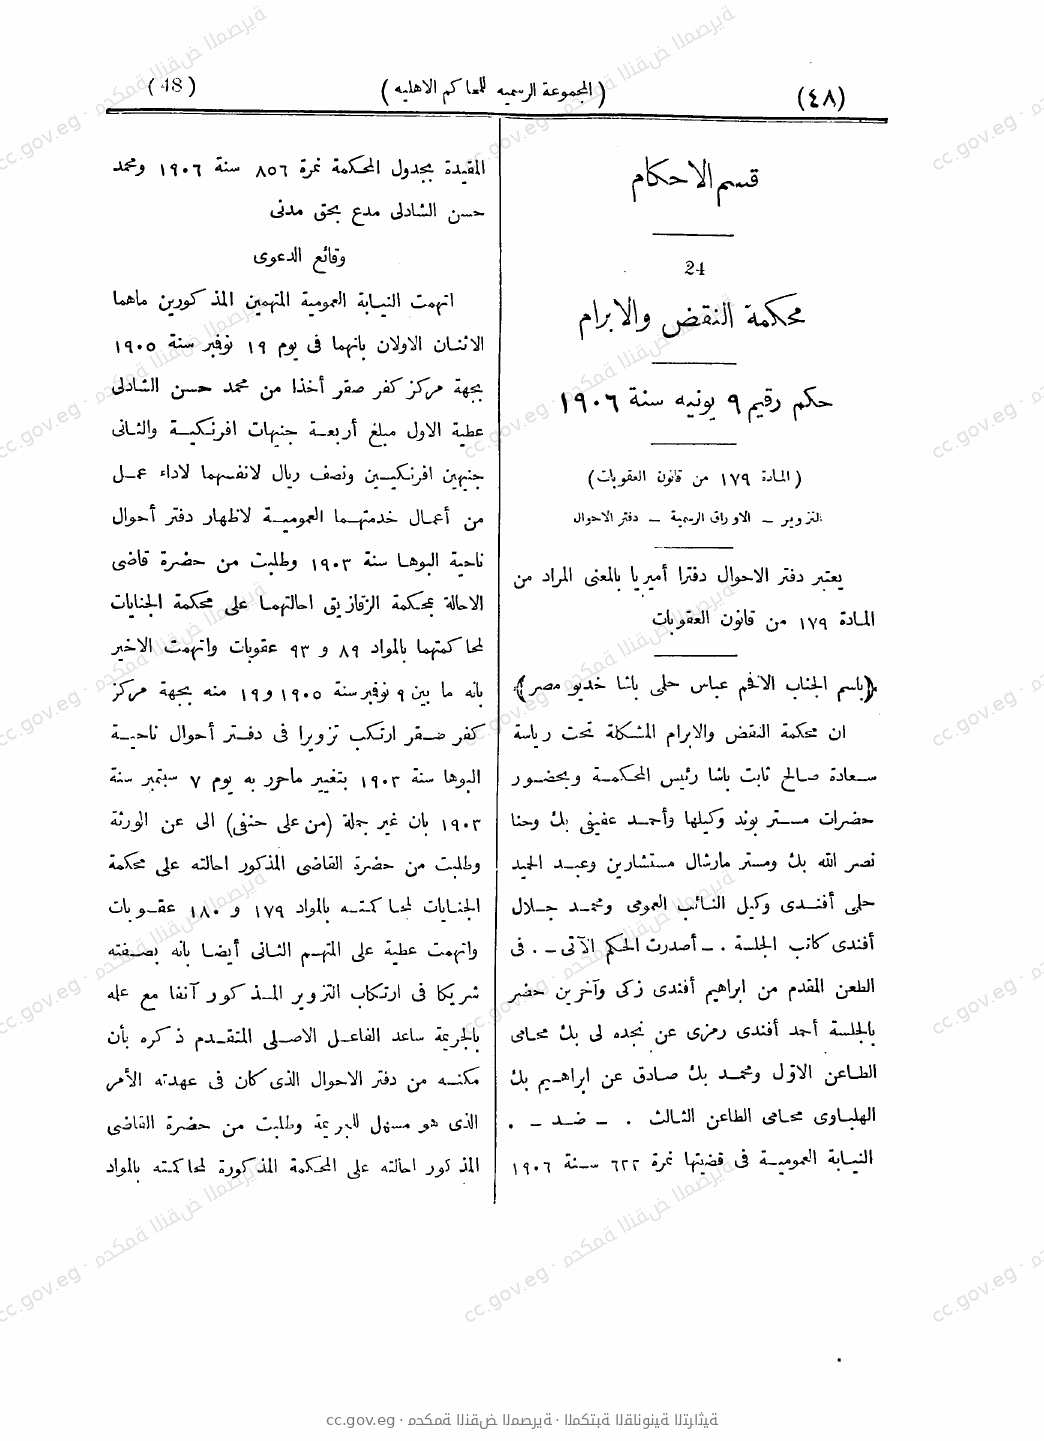 (٤٨)
(المجموعة الرسميه للمحاكم الاهليه)
(48)
قسم الاحكام
24
محكمة النقض والابرام
حكم رقيم ٩ يونيه سنة ١٩٠٦
(المادة ١٧٩ من قانون العقوبات)
التزوير – الاوراق الرسمية – دفتر الاحوال
يعتبر دفتر الاحوال دفترا أميريا بالمعنى المراد من
المادة ١٧٩ من قانون العقوبات
(باسم الجناب الافخم عباس حلمى باشا خديو مصر)
ان محكمة النقض والابرام المشكلة تحت رياسة
سعادة صالح ثابت باشا رئيس المحكمة وبحضور
حضرات مستر بوند وكيلها وأحمد عفيفى بك وحنا
نصر الله بك ومستر مارشال مستشارين وعبد الحميد
حلمى أفندى وكيل النائب العمومى ومحمد جلال
أفندى كاتب الجلسة . – أصدرت الحكم الآتى – . فى
الطعن المقدم من ابراهيم أفندى زكى وآخرين حضر
بالجلسة أحمد أفندى رمزى عن نجده لى بك محامى
الطاعن الاوّل ومحمد بك صادق عن ابراهيم بك
الهلباوى محامى الطاعن الثالث . – ضد – .
النيابة العمومية فى قضيتها نمرة ٦٢٢ سنة ١٩٠٦
المقيدة بجدول المحكمة نمرة ٨٥٦ سنة ١٩٠٦ ومحمد
حسن الشادلى مدع بحق مدنى
وقائع الدعوى
اتهمت النيابة العمومية المتهمين المذكورين ماهما
الاثنان الاولان بانهما فى يوم ١٩ نوفمبر سنة ١٩٠٥
بجهة مركز كفر صقر أخذا من محمد حسن الشادلى
عطية الاول مبلغ أربعة جنيهات افرنكية والثانى
جنيهين افرنكيين ونصف ريال لانفسهما لاداء عمل
من أعمال خدمتهما العمومية لاظهار دفتر أحوال
ناحية البوها سنة ١٩٠٣ وطلبت من حضرة قاضى
الاحالة بمحكمة الزقازيق احالتهما على محكمة الجنايات
لمحاكمتهما بالمواد ٨٩ و ٩٣ عقوبات واتهمت الاخير
بانه ما بين ٩ نوفمبر سنة ١٩٠٥ و١٩ منه بجهة مركز
كفر صقر ارتكب تزويرا فى دفتر أحوال ناحية
البوها سنة ١٩٠٣ بتغيير ماحرر به يوم ٧ سبتمبر سنة
١٩٠٣ بان غير جملة (من على حنفى) الى عن الورثة
وطلبت من حضرة القاضى المذكور احالته على محكمة
الجنايات لمحاكمته بالمواد ١٧٩ و ١٨٠ عقوبات
واتهمت عطية على المتهم الثانى أيضا بانه بصفته
شريكا فى ارتكاب التزوير المذكور آنفا مع علمه
بالجريمة ساعد الفاعل الاصلى المتقدم ذكره بأن
مكنه من دفتر الاحوال الذى كان فى عهدته الأمر
الذى هو مسهل للجريمة وطلبت من حضرة القاضى
المذكور احالته على المحكمة المذكورة لمحاكمته بالمواد
cc.gov.eg · محكمة النقض المصرية · المكتبة القانونية التراثية